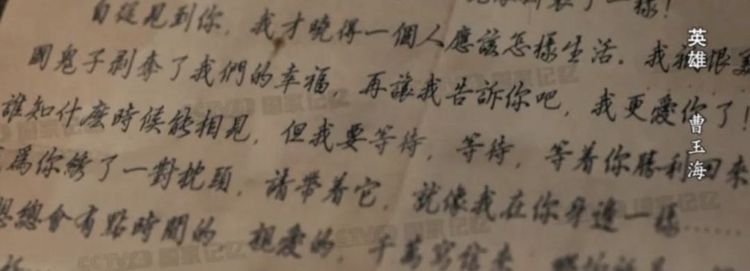 自從見到你，我才曉得一個人應該怎樣生活。我
國鬼子剥奪了我們的幸福 再讓我告訴你吧，我更愛你了！
誰知什麽時候能相見，但我要等待，等待，等着你勝利回來
爲你綉了一對枕頭，請帶着它，就像我在你身邊一樣……
總會有點時間的，親愛的，千萬寫信來
英雄 曹玉海